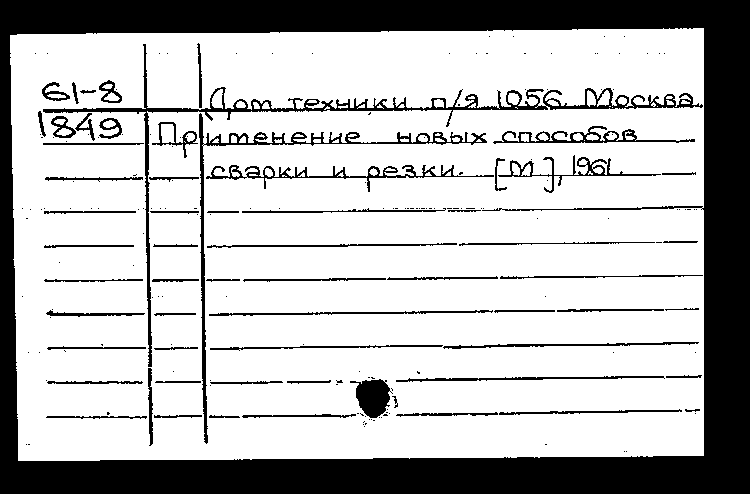 61-8 Дом техники п/я 1056. Москва.
1849 Применение новых способов
сварки и резки. [М], 1961.